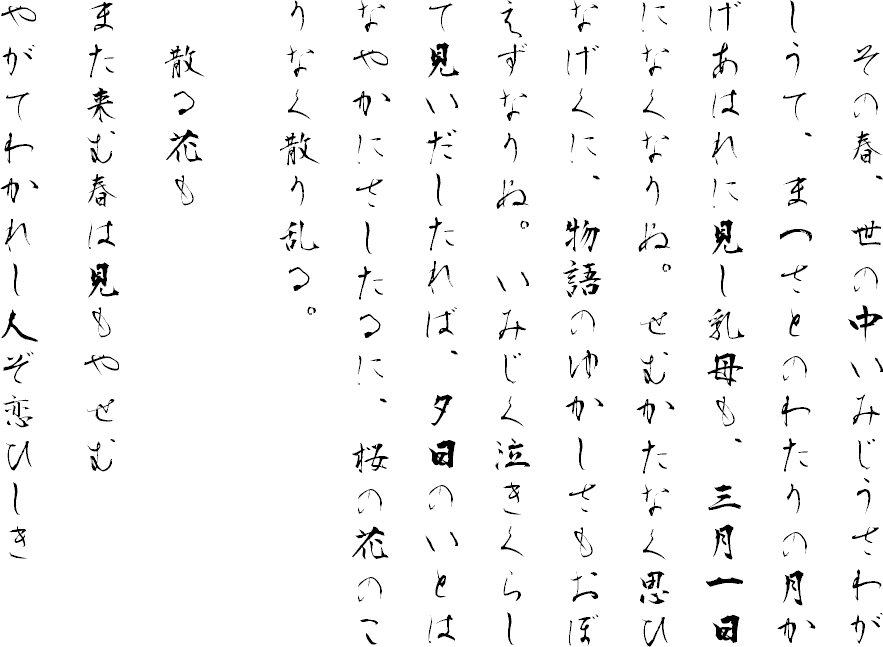 その春、世の中いみじうさわが
しうて、まつさとのわたりの月か
げあはれに見し乳母も、三月一日
になくなりぬ。せむかたなく思ひ
なげくに、物語のゆかしさもおぼ
えずなりぬ。いみじく泣きくらし
て見いだしたれば、夕日のいとは
なやかにさしたるに、桜の花のこ
りなく散り乱る。
散る花も
また来む春は見もやせむ
やがてわかれし人ぞ恋ひしき